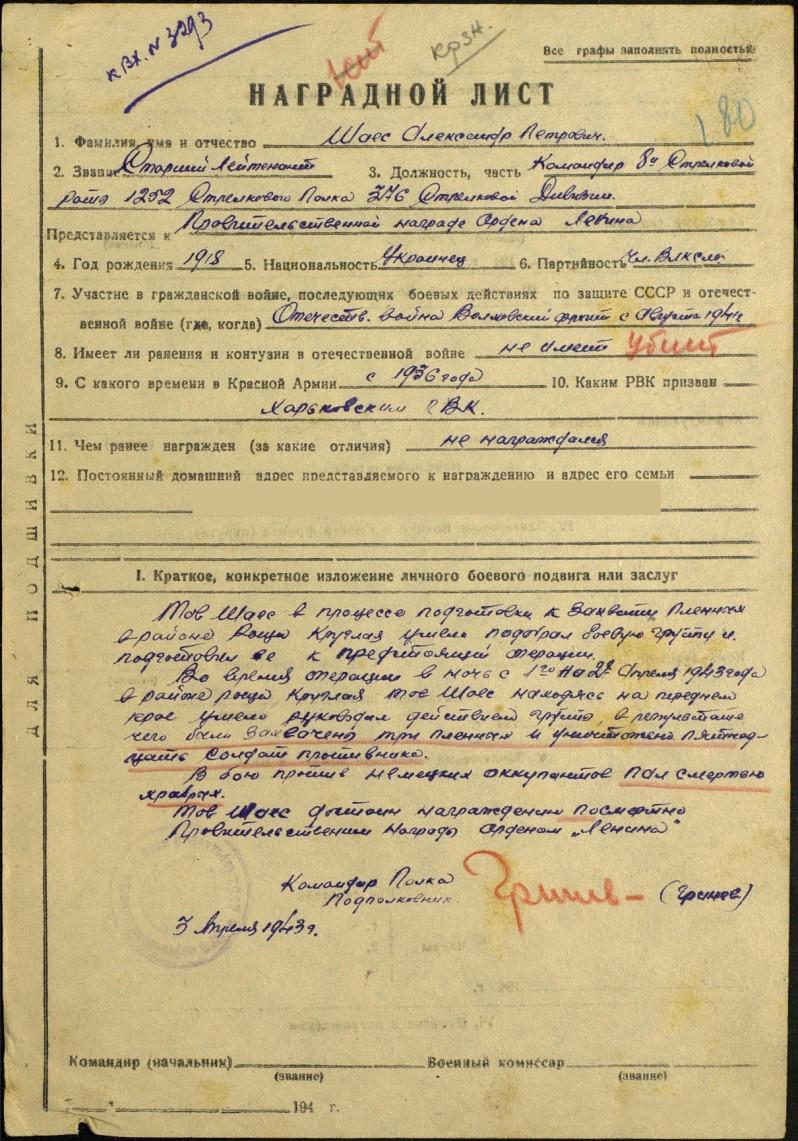 к вх. № 3293
КРЗН.
Все графы заполнять полностью
НАГРАДНОЙ ЛИСТ
180
1. Фамилия, имя и отчество Шаес Александр Петрович.
2. Звание Старший Лейтенант 3. Должность, часть Командир 8й Стрелковой
роты 1252 Стрелкового Полка 376 Стрелковой Дивизии.
Представляется к Правительственной награде Ордена Ленина
4. Год рождения 1918 5. Национальность Украинец 6. Партийность Чл. ВЛКСМ
7. Участие в гражданской войне, последующих боевых действиях по защите СССР и отечест-
венной войне (где, когда) Отечеств. война Волховский фронт с Августа 1941г
8. Имеет ли ранения и контузии в отечественной войне не имеет убит
9. С какого времени в Красной Армии с 1936 года 10. Каким РВК призван
Харьковским ГВК.
11. Чем ранее награжден (за какие отличия) не награждался
12. Постоянный домашний адрес представляемого к награждению и адрес его семьи
ДЛЯ ПОДШИВКИ
I. Краткое, конкретное изложение личного боевого подвига или заслуг
Тов Шаес в процессе подготовки к захвату пленных
в районе рощи Круглая умело подобрал боевую группу и
подготовил ее к предстоящей операции.
Во время операции в ночь с 1го на 2е Апреля 1943 года
в районе рощи Круглая тов Шаес находясь на переднем
крае умело руководил действием группы, в результате
чего были захвачено три пленных и уничтожено пятнад-
цать солдат противника.
В бою против немецких оккупантов пал смертью
храбрых.
Тов Шаес достоин награждения посмертно
Правительственной награды орденом „Ленина"
Командир Полка
Подполковник (Гринев)
3 Апреля 1943 г.
Командир (начальник) Военный комиссар
(звание) (звание)
" " 194 г.